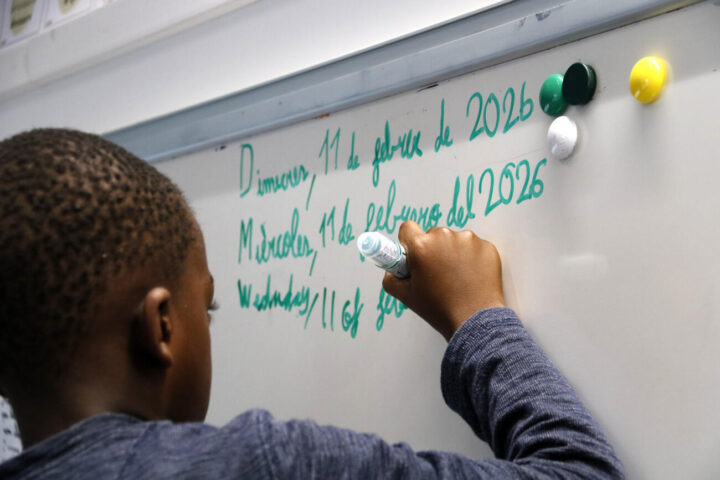 Dimecres, 11 de febrer de 2026
Miércoles, 11 de febrero del 2026
Wednday, 11 of feb